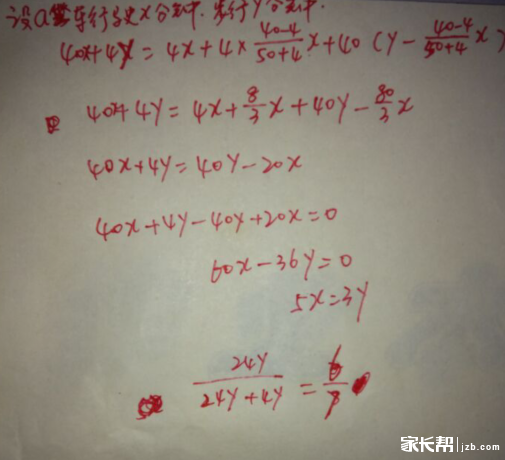 设a车行驶x分钟. 步行y分钟.
40x+4y = 4x+4×\frac{40-4}{50+4}x+40(y-\frac{40-4}{50+4}x)
40x+4y=4x+\frac{8}{3}x+40y-\frac{80}{3}x
40x+4y=40y-20x
40x+4y-40y+20x=0
60x-36y=0
5x=3y
\frac{24y}{24y+4y}=\frac{6}{7}
家长帮 jzb.com